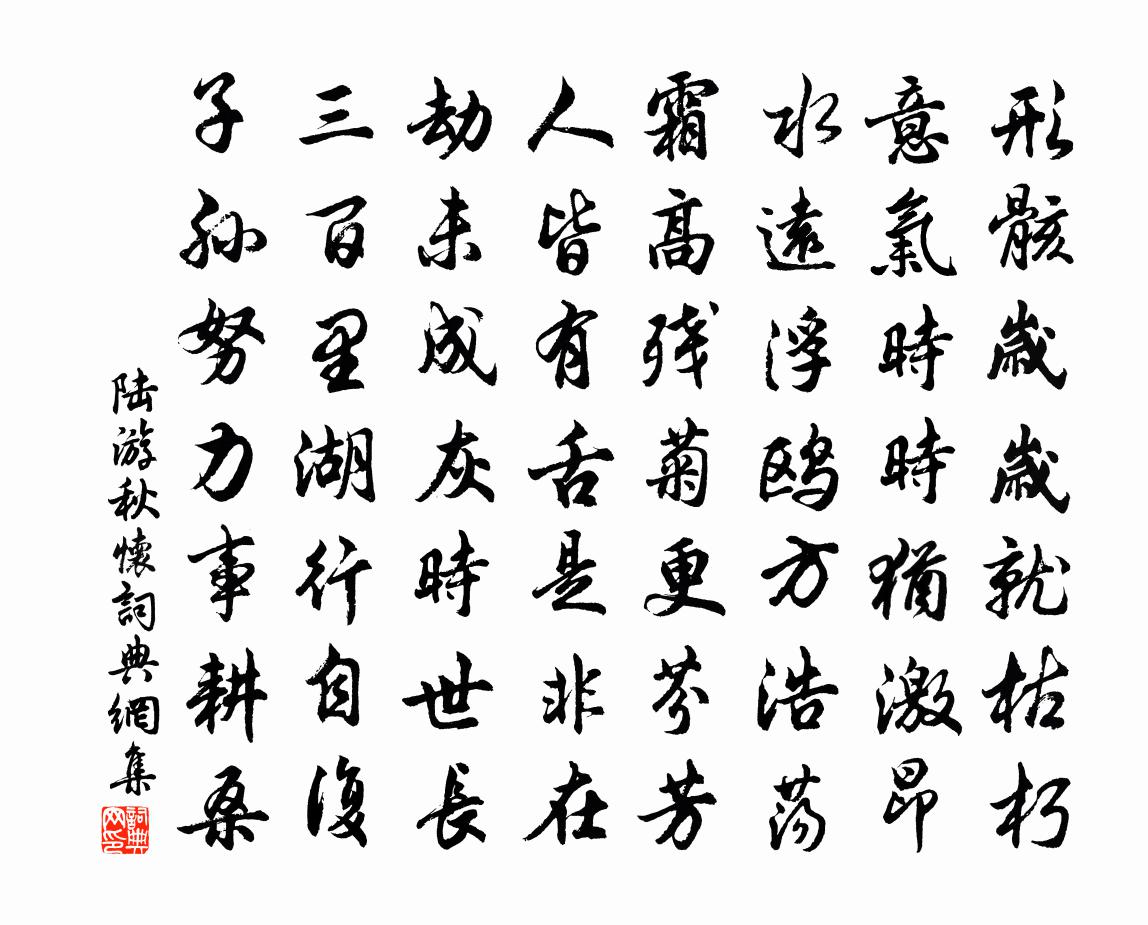 形骸歲歲就枯朽
意氣時時猶激昂
水遠浮鷗方浩蕩
霜高殘菊更芬芳
人皆有舌是非在
劫未成灰時世長
三百里湖行自復
子孫努力事耕桑
陆游秋懷詞典網集
詞典网印